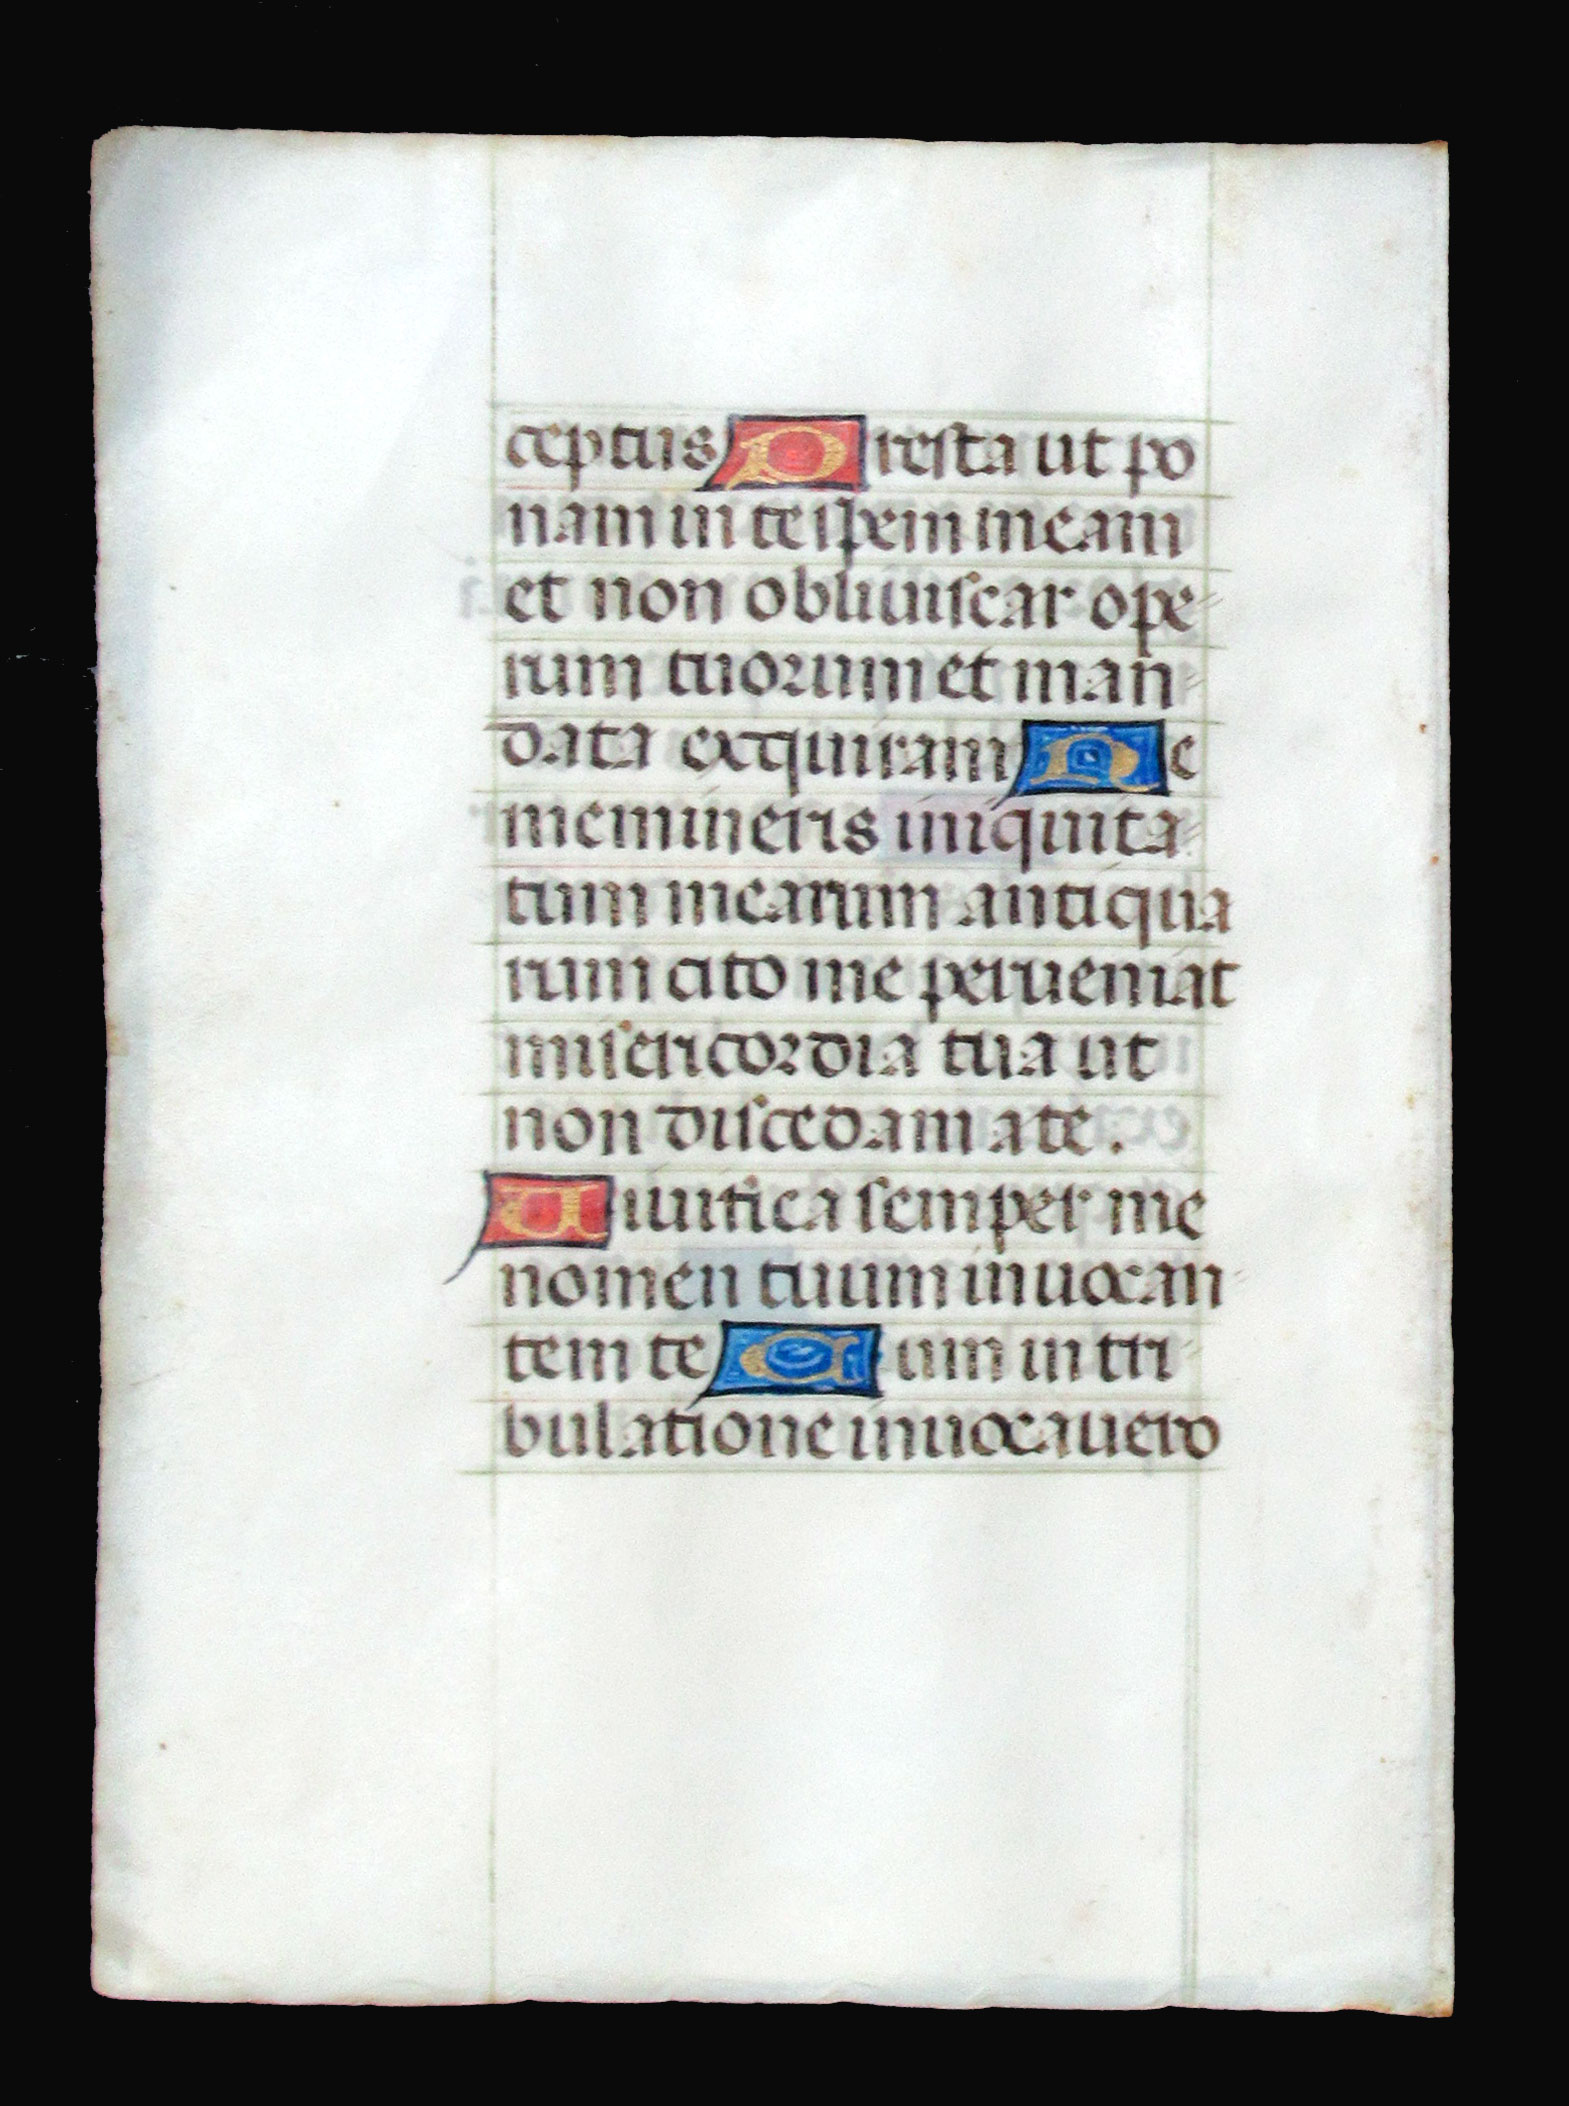 ceptus Presta ut po
nam in te spem meam
et non obliuiscar ope-
rum tuorum et man-
data exquiram Ne
memineris iniquita-
tum mearum antiqua
rum cito me perueniat
misericordia tua ut
non discedam a te.
Uiuifica semper me
nomen tuum inuocan-
tem te Cum in tri-
bulatione inuocauero